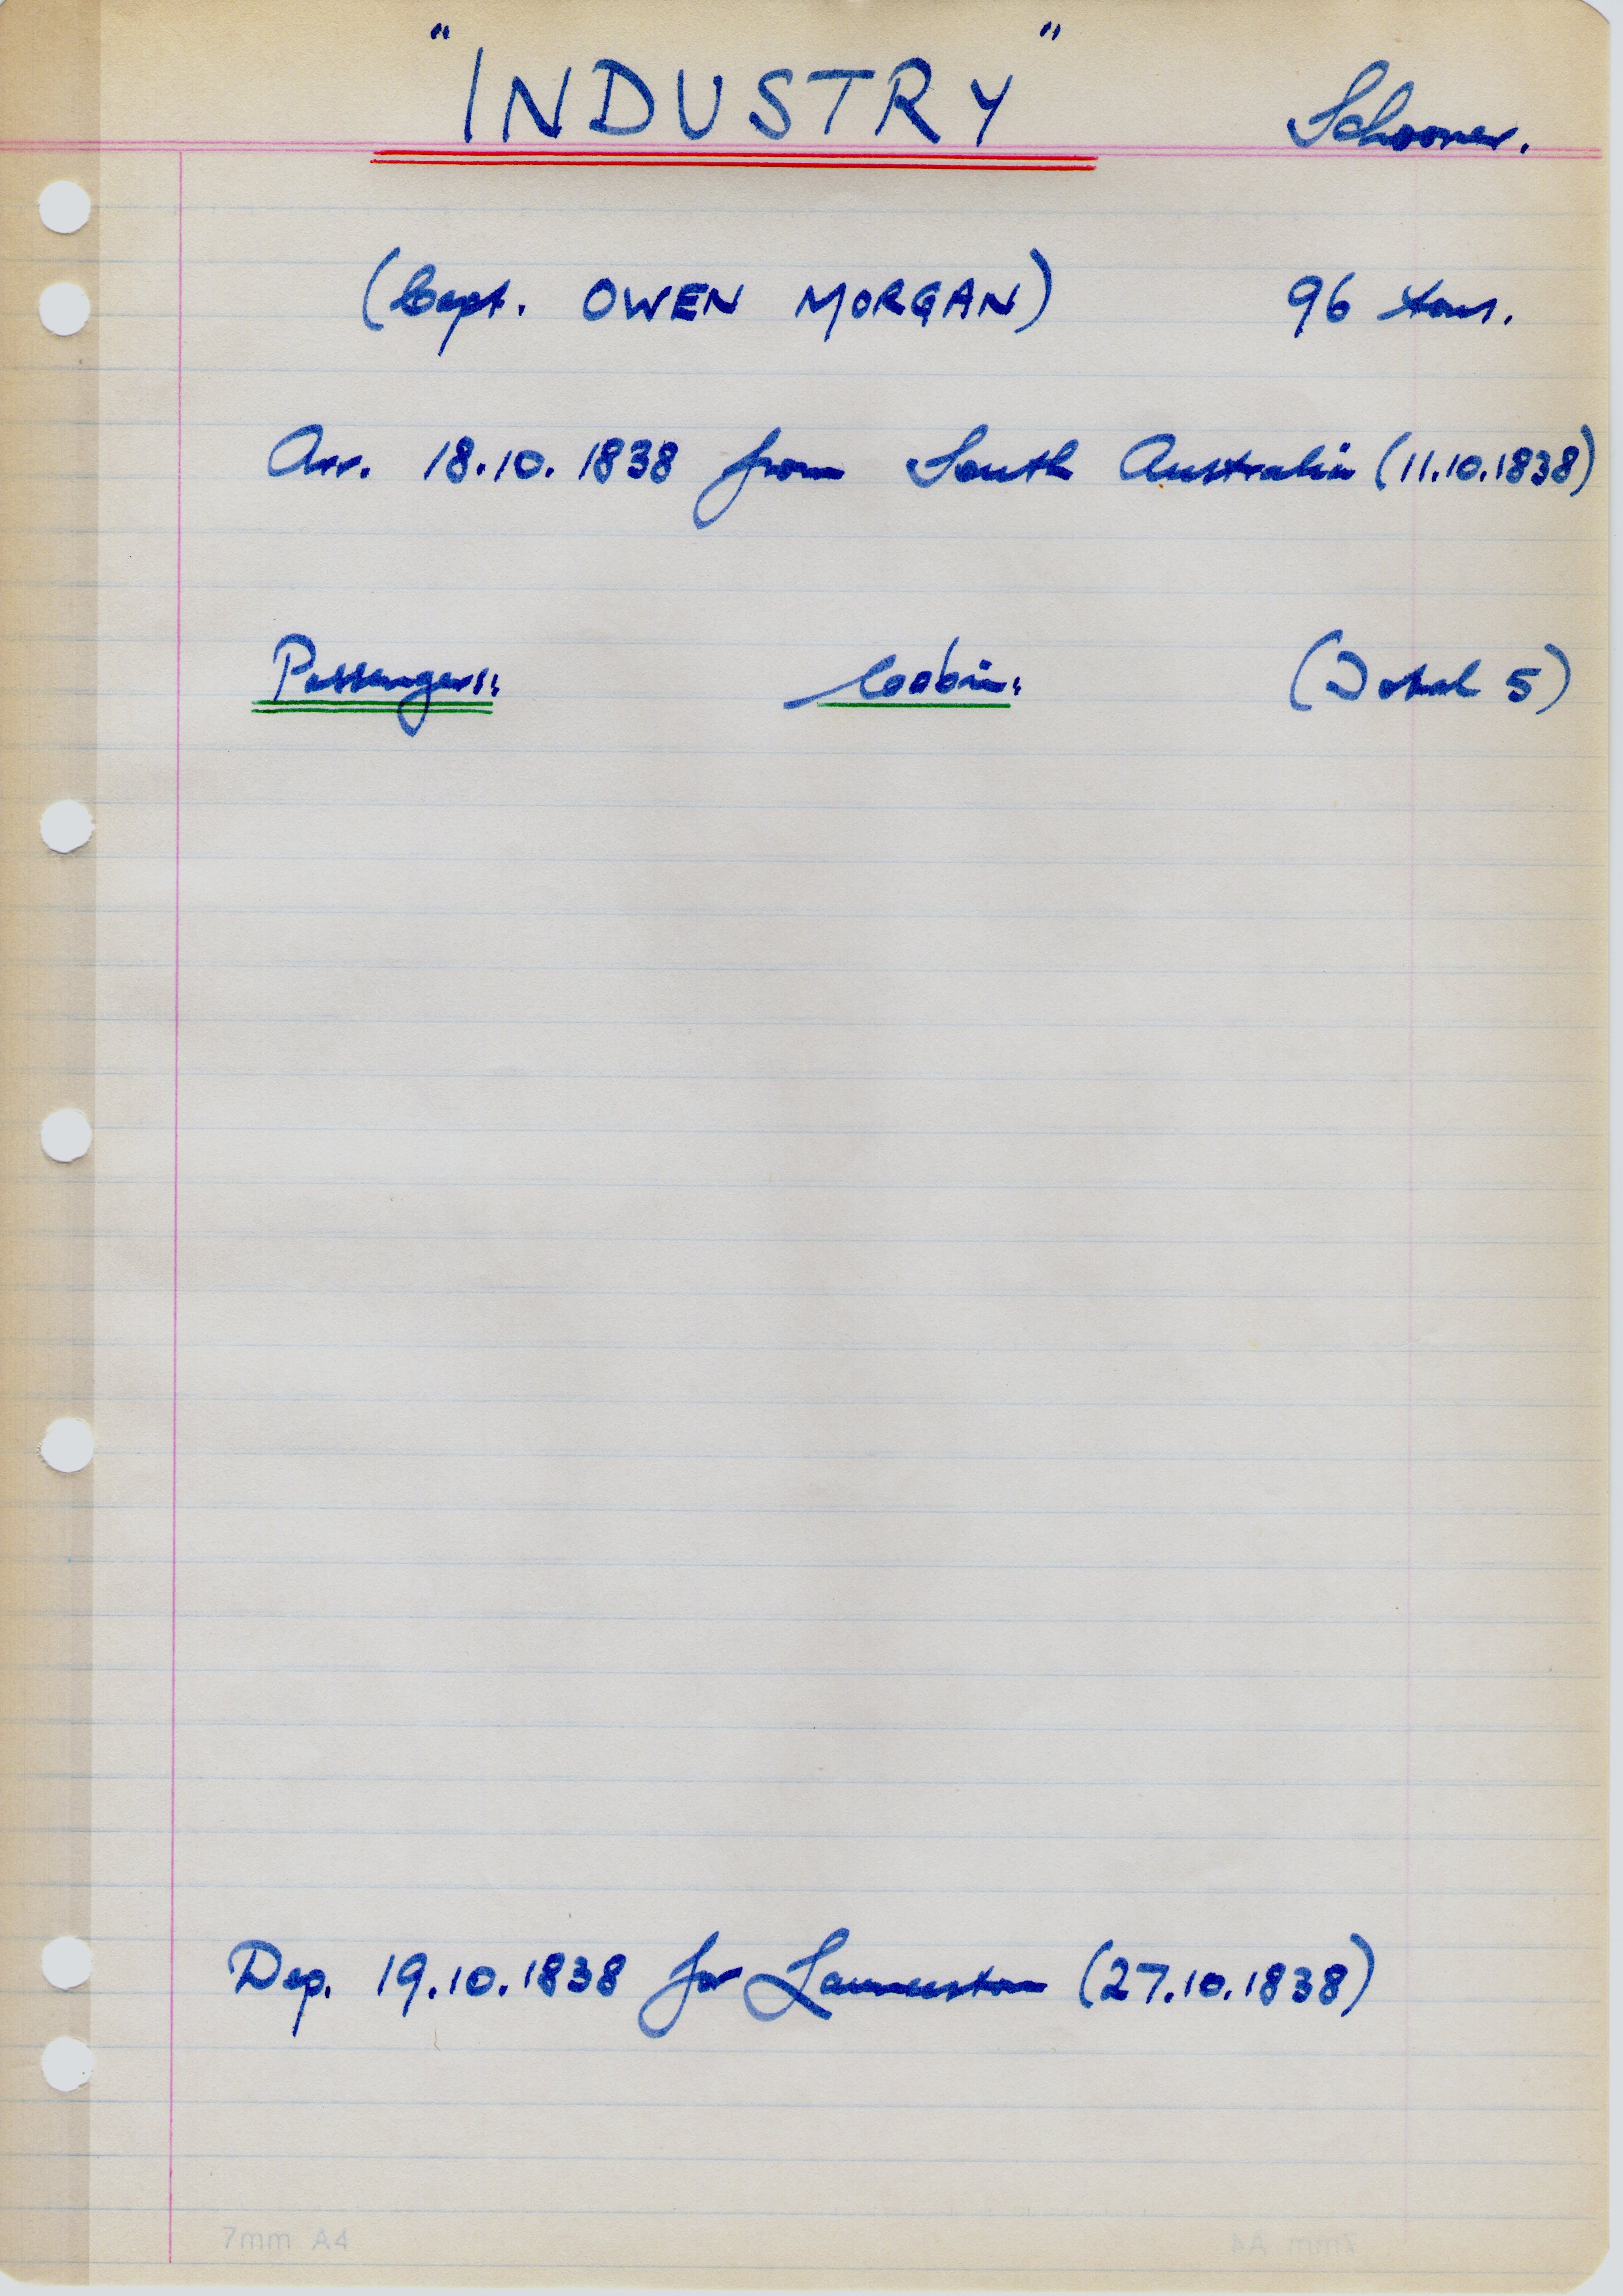 "INDUSTRY" Schooner.
(Capt. OWEN MORGAN) 96 tons.
Arr. 18.10.1838 from South Australia (11.10.1838)
Passengers: Cabin: (Total 5)
Dep. 19.10.1838 for Launceston (27.10.1838)
7mm A4